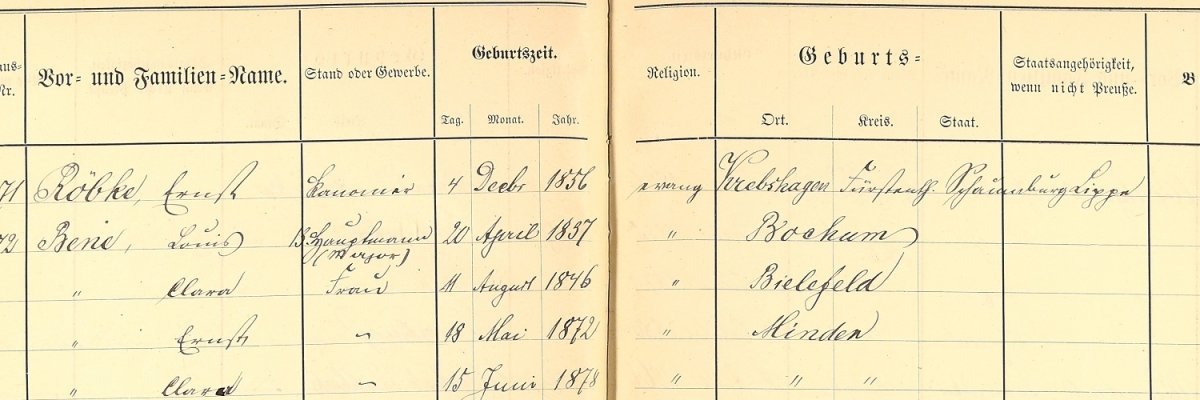 Vor- und Familien-Name. Stand oder Gewerbe. Geburtszeit. Religion. Geburts- Staatsangehörigkeit, wenn nicht Preuße.
Tag. Monat. Jahr. Ort. Kreis. Staat.
71 Röbke, Ernst Kanonier 4 Decbr 1856 evang Krebshagen Fürstenth. Schaumburg Lippe
72 Bene, Louis Hauptmann 20 April 1837 " Bochum
(Major)
" Clara Frau 11 August 1846 " Bielefeld
" Ernst - 18 Mai 1872 " Minden
" Clara - 15 Juni 1878 " " "